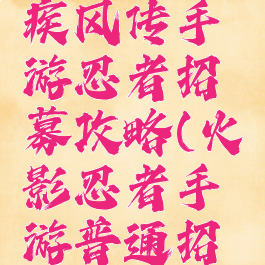 疾风传手
游忍者招
募攻略(火
影忍者手
游普通招